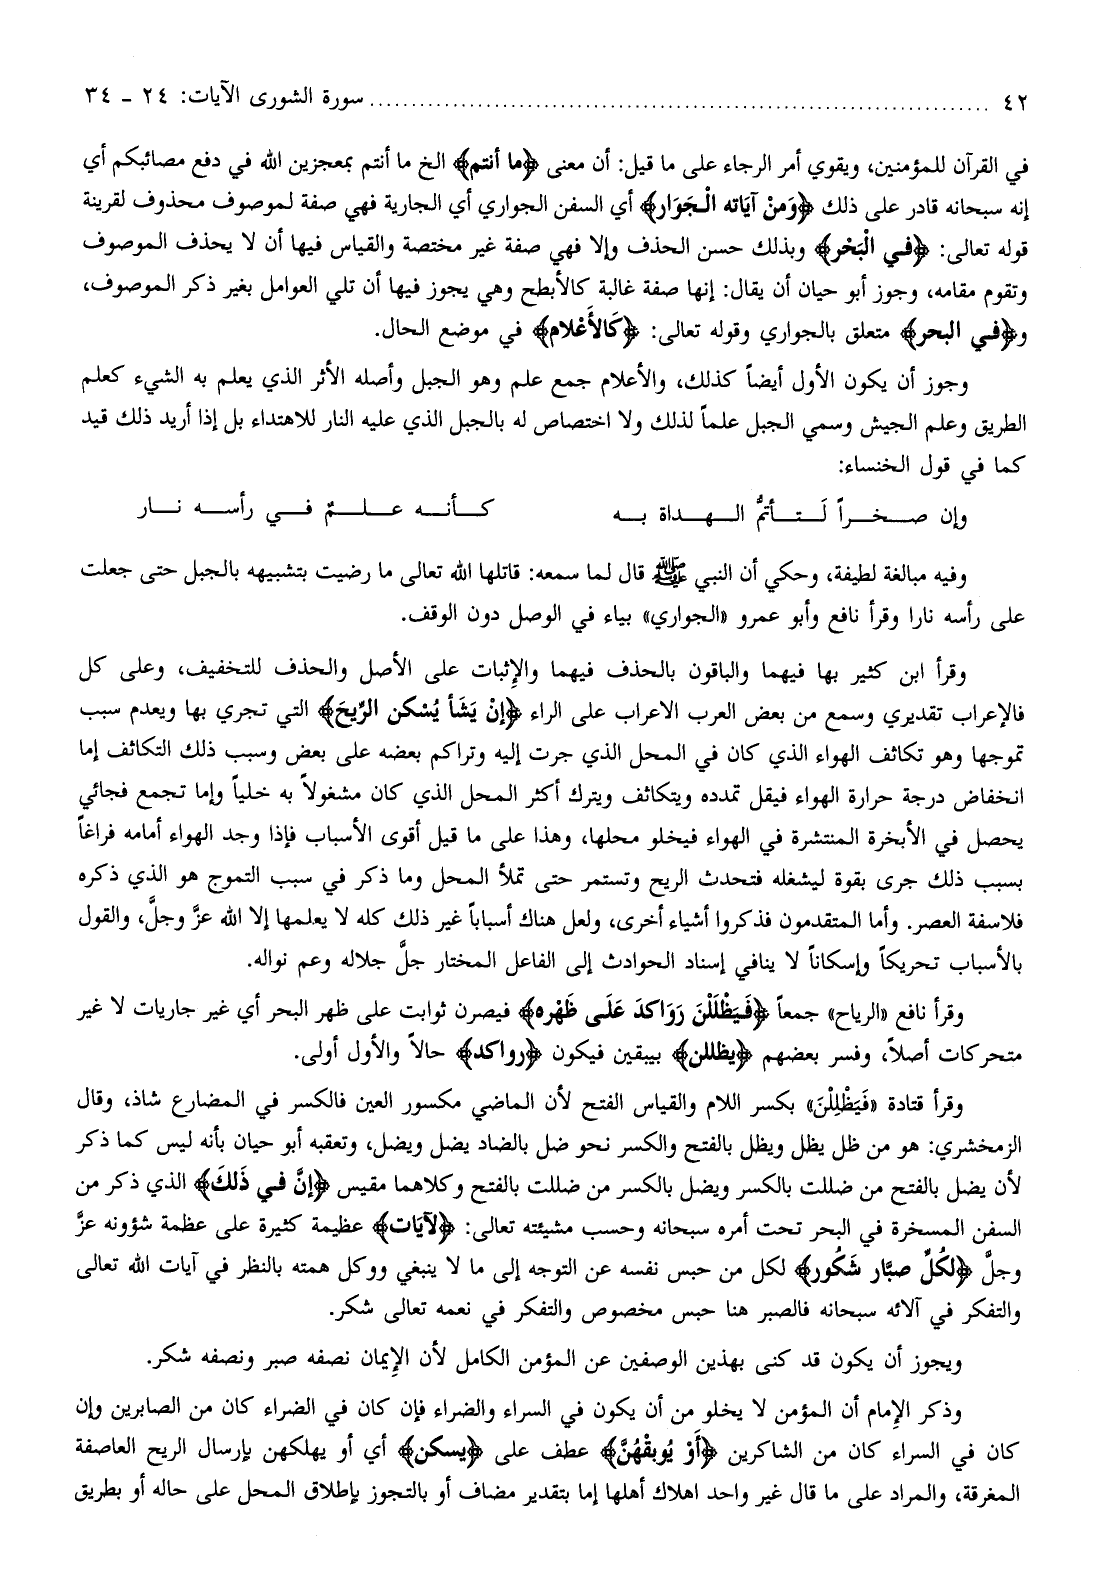 ٤٢ ........................................................................ سورة الشورى الآيات: ٢٤ - ٣٤
في القرآن للمؤمنين، ويقوي أمر الرجاء على ما قيل: أن معنى ﴿ما أنتم﴾ الخ ما أنتم بمعجزين الله في دفع مصائبكم أي
إنه سبحانه قادر على ذلك ﴿وَمنْ آيَاته الْجَوَار﴾ أي السفن الجواري أي الجارية فهي صفة لموصوف محذوف لقرينة
قوله تعالى: ﴿في الْبَحْر﴾ وبذلك حسن الحذف وإلا فهي صفة غير مختصة والقياس فيها أن لا يحذف الموصوف
وتقوم مقامه، وجوز أبو حيان أن يقال: إنها صفة غالبة كالأبطح وهي يجوز فيها أن تلي العوامل بغير ذكر الموصوف،
و﴿في البحر﴾ متعلق بالجواري وقوله تعالى: ﴿كَالأَعْلام﴾ في موضع الحال.
وجوز أن يكون الأول أيضاً كذلك، والأعلام جمع علم وهو الجبل وأصله الأثر الذي يعلم به الشيء كعلم
الطريق وعلم الجيش وسمي الجبل علماً لذلك ولا اختصاص له بالجبل الذي عليه النار للاهتداء بل إذا أريد ذلك قيد
كما في قول الخنساء:
وإن صـخـراً لَـتـأتمُّ الـهـداة بـه كـأنـه عـلـمٌ فـي رأسـه نـار
وفيه مبالغة لطيفة، وحكي أن النبي ﷺ قال لما سمعه: قاتلها الله تعالى ما رضيت بتشبيهه بالجبل حتى جعلت
على رأسه نارا وقرأ نافع وأبو عمرو «الجواري» بياء في الوصل دون الوقف.
وقرأ ابن كثير بها فيهما والباقون بالحذف فيهما والإثبات على الأصل والحذف للتخفيف، وعلى كل
فالإعراب تقديري وسمع من بعض العرب الاعراب على الراء ﴿إنْ يَشَأ يُسْكن الرِّيحَ﴾ التي تجري بها ويعدم سبب
تموجها وهو تكاثف الهواء الذي كان في المحل الذي جرت إليه وتراكم بعضه على بعض وسبب ذلك التكاثف إما
انخفاض درجة حرارة الهواء فيقل تمدده ويتكاثف ويترك أكثر المحل الذي كان مشغولاً به خلياً وإما تجمع فجائي
يحصل في الأبخرة المنتشرة في الهواء فيخلو محلها، وهذا على ما قيل أقوى الأسباب فإذا وجد الهواء أمامه فراغاً
بسبب ذلك جرى بقوة ليشغله فتحدث الريح وتستمر حتى تملأ المحل وما ذكر في سبب التموج هو الذي ذكره
فلاسفة العصر. وأما المتقدمون فذكروا أشياء أخرى، ولعل هناك أسباباً غير ذلك كله لا يعلمها إلا الله عزَّ وجلَّ، والقول
بالأسباب تحريكاً وإسكاناً لا ينافي إسناد الحوادث إلى الفاعل المختار جلَّ جلاله وعم نواله.
وقرأ نافع «الرياح» جمعاً ﴿فَيَظْلَلْنَ رَوَاكدَ عَلَى ظَهْره﴾ فيصرن ثوابت على ظهر البحر أي غير جاريات لا غير
متحركات أصلاً، وفسر بعضهم ﴿يظللن﴾ بيبقين فيكون ﴿رواكد﴾ حالاً والأول أولى.
وقرأ قتادة «فَيَظْلِلْنَ» بكسر اللام والقياس الفتح لأن الماضي مكسور العين فالكسر في المضارع شاذ، وقال
الزمخشري: هو من ظل يظل ويظل بالفتح والكسر نحو ضل بالضاد يضل ويضل، وتعقبه أبو حيان بأنه ليس كما ذكر
لأن يضل بالفتح من ضللت بالكسر ويضل بالكسر من ضللت بالفتح وكلاهما مقيس ﴿إنَّ في ذَلكَ﴾ الذي ذكر من
السفن المسخرة في البحر تحت أمره سبحانه وحسب مشيئته تعالى: ﴿لآيَات﴾ عظيمة كثيرة على عظمة شؤونه عزَّ
وجلَّ ﴿لكُلِّ صبَّار شَكُور﴾ لكل من حبس نفسه عن التوجه إلى ما لا ينبغي ووكل همته بالنظر في آيات الله تعالى
والتفكر في آلائه سبحانه فالصبر هنا حبس مخصوص والتفكر في نعمه تعالى شكر.
ويجوز أن يكون قد كنى بهذين الوصفين عن المؤمن الكامل لأن الإيمان نصفه صبر ونصفه شكر.
وذكر الإمام أن المؤمن لا يخلو من أن يكون في السراء والضراء فإن كان في الضراء كان من الصابرين وإن
كان في السراء كان من الشاكرين ﴿أَوْ يُوبقْهُنَّ﴾ عطف على ﴿يسكن﴾ أي أو يهلكهن بإرسال الريح العاصفة
المغرقة، والمراد على ما قال غير واحد اهلاك أهلها إما بتقدير مضاف أو بالتجوز بإطلاق المحل على حاله أو بطريق